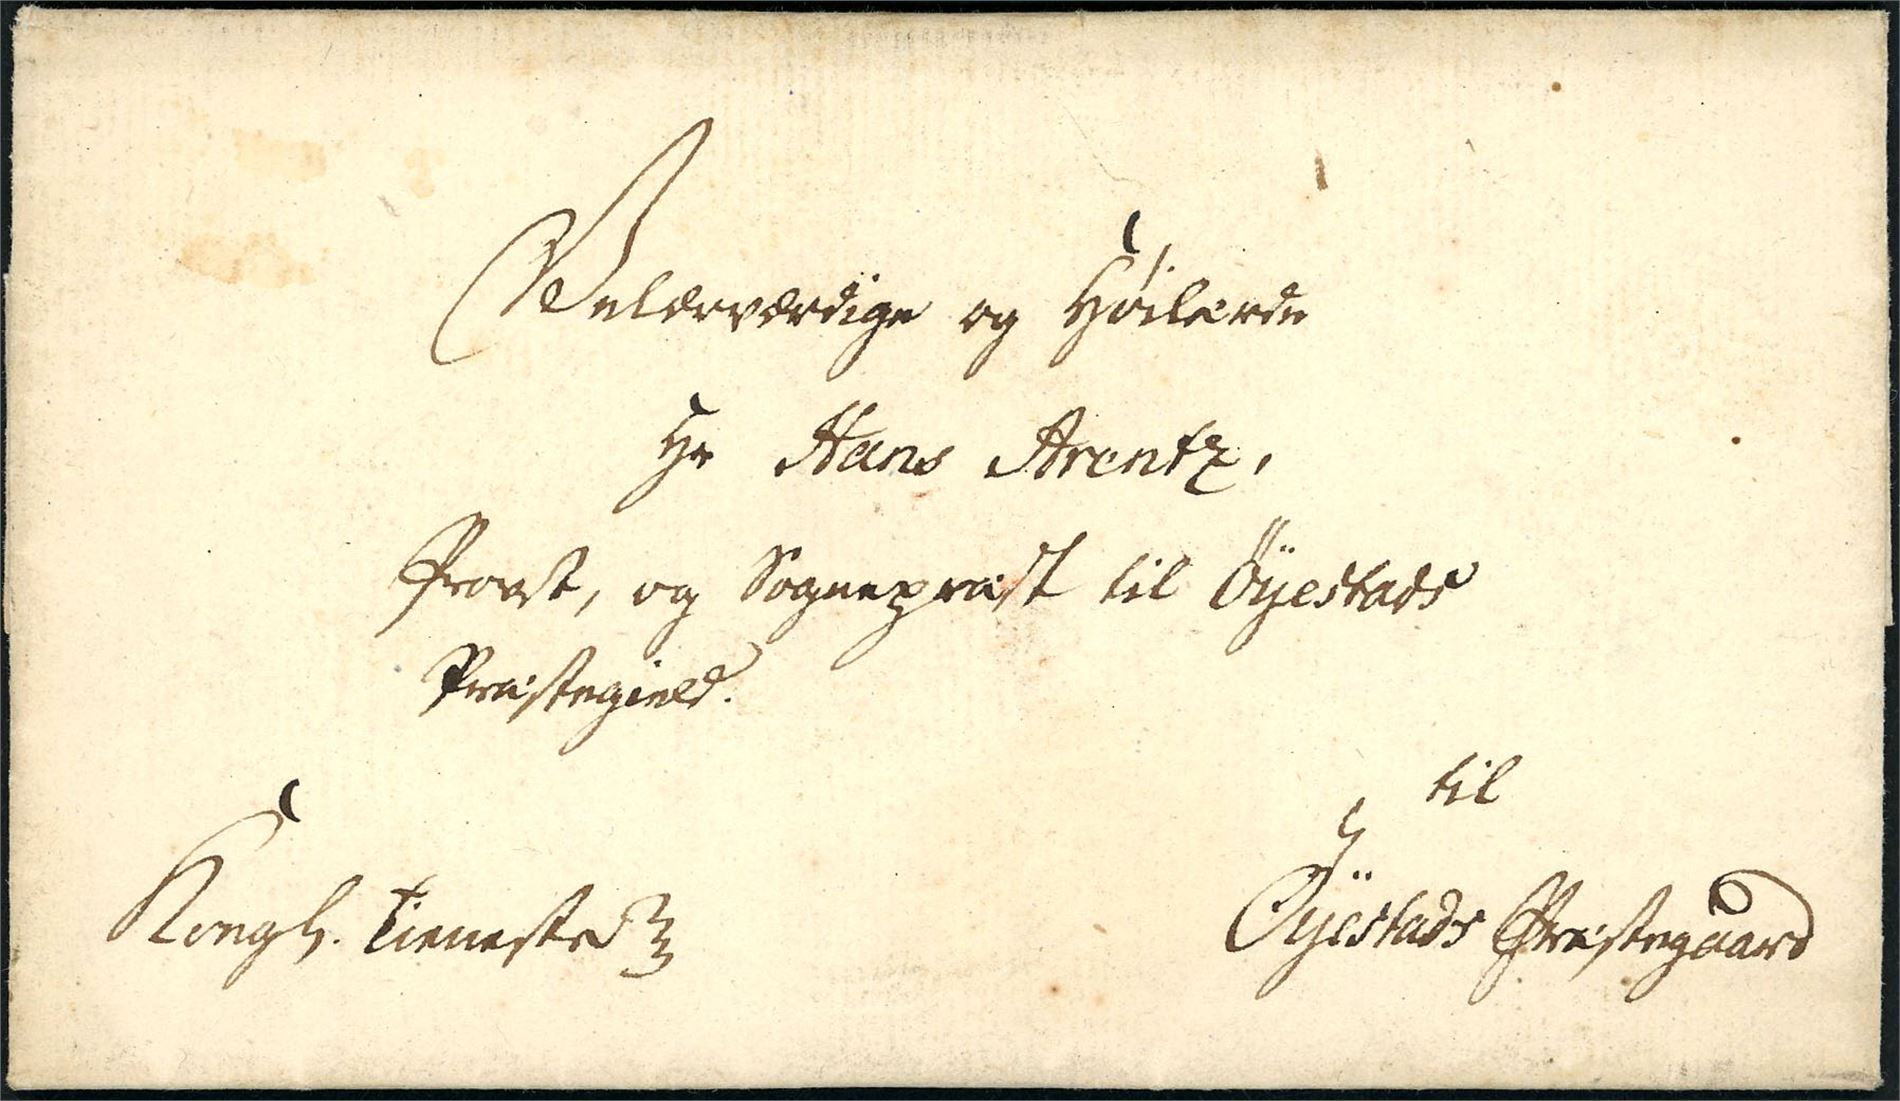 Velærværdige og Höilærde
Hr Hans Arentz,
Provst, og Sognepræst til Öyestads
Præstegield.
til
Kongl. Tieneste
Öyestads Præstegaard